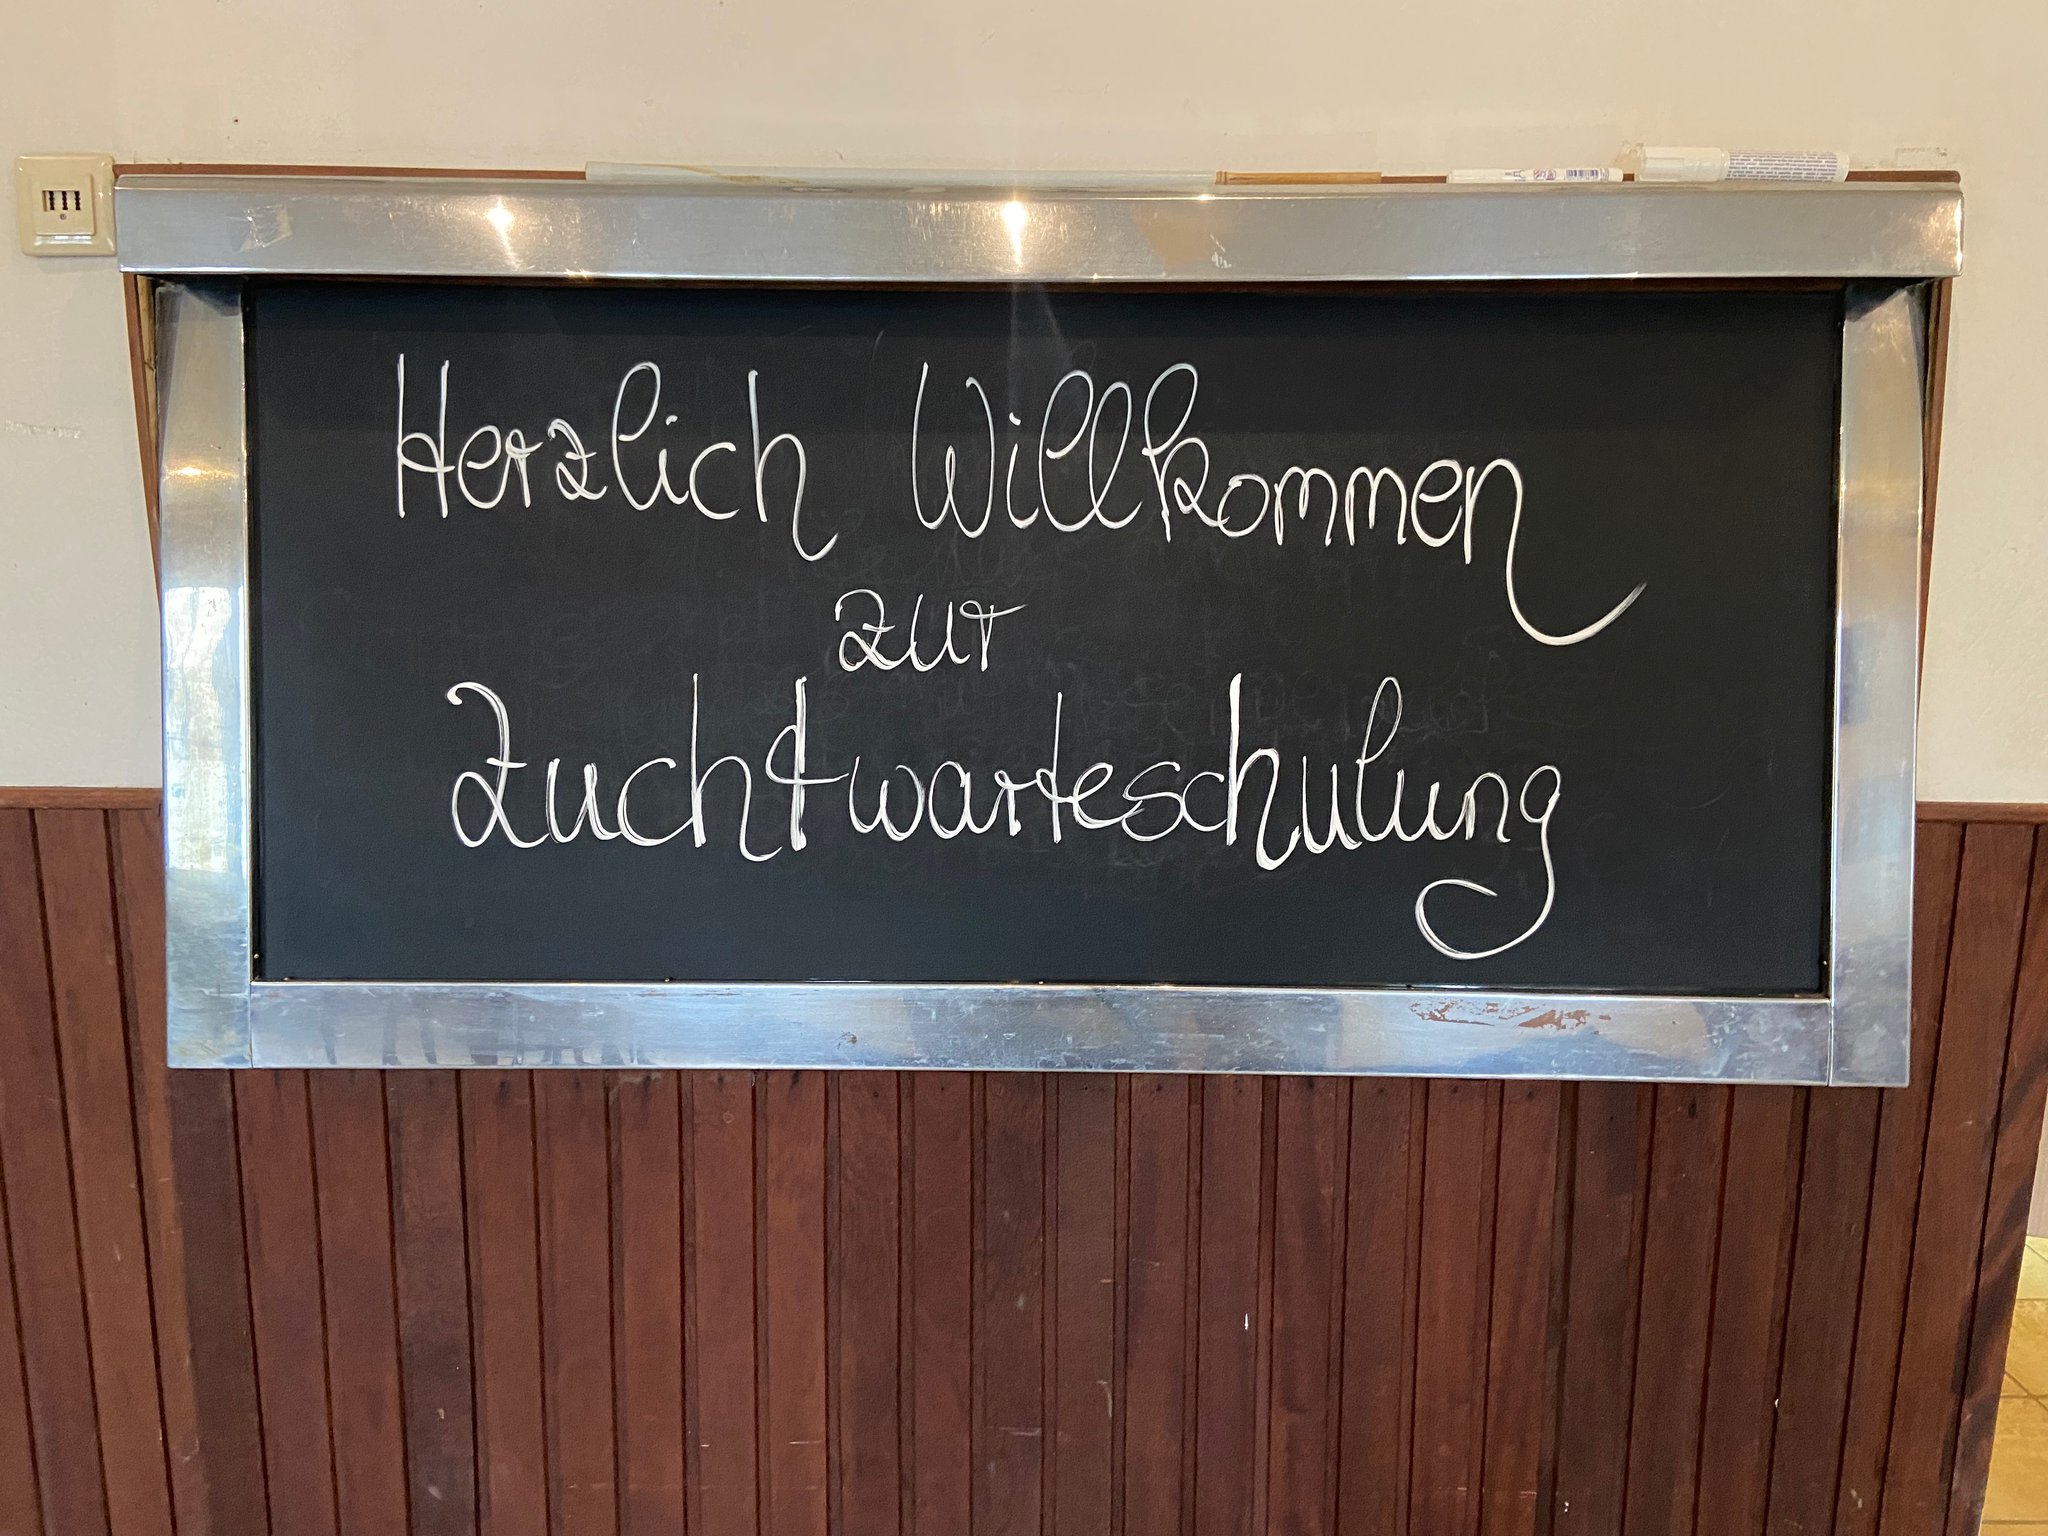 Herzlich Willkommen
zur
Zuchtwarteschulung